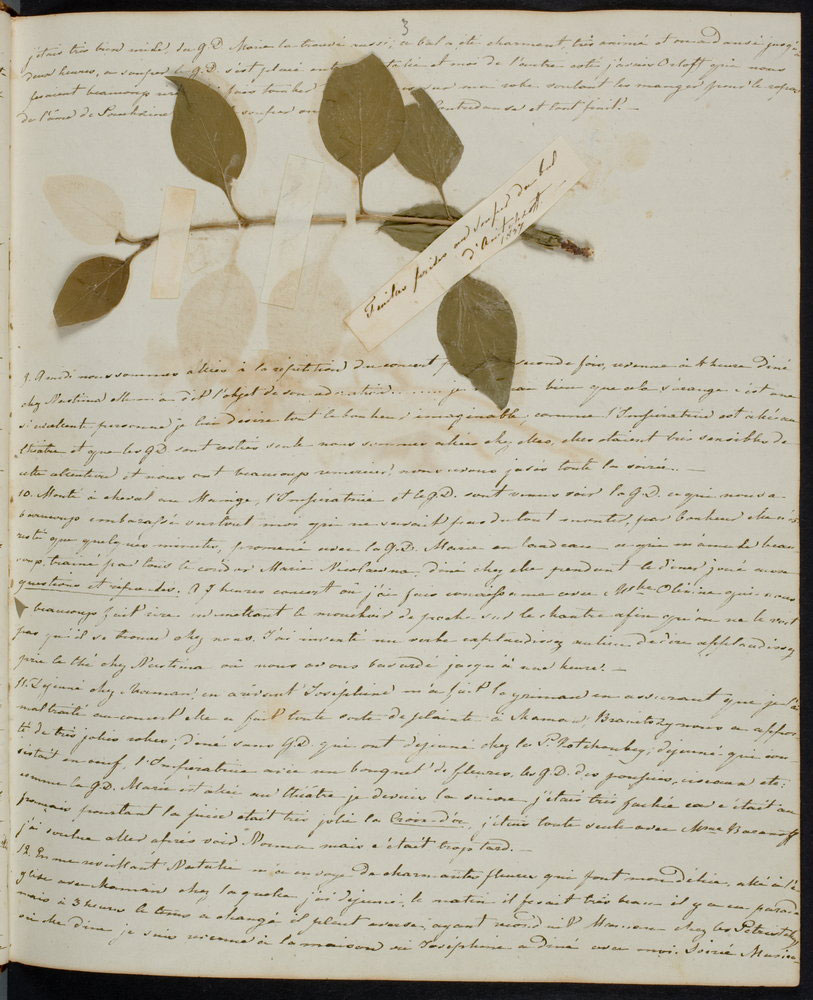 3
j'étais très bien mise la G.D. Marie l'a trouvé aussi, le bal a été charmant, très animé et on a dansé jusqu'à
deux heures, au souper la G.D. s'est placé entre Natalie et moi de l'autre côté j'avais Orloff qui nous
faisait beaucoup tomber sur ma robe voulant les manger pour le repos
de l'âme de souper on Contredanse et tout finit. —
Feuilles prises au souper du bal
d'Anitchkoff
1837
9. Rendi nous sommes allées à la répétition du concert pour la seconde fois, revenue à 4 heure Diné
chez Nestina l'objet de son adoration bien que cela s'arrange c'est une
excellente personne je lui désire tout le bonheur imaginable, comme l'Impératrice est allée au
théâtre et que les G.D. sont restées seule nous sommes allées chez elles, elles étaient très sensibles de
cette attention et nous ont beaucoup remercié, nous avons jasés toute la soirée. —
10. Monté à cheval au Manège, l'Impératrice et le G.D. sont venus voir la G.D. ce qui nous a
beaucoup embarassé surtout moi qui ne savait pas du tout monter, par bonheur elle n'est
resté que quelques minutes, promené avec la G.D. Marie en landeau ce qui m'amuse beau-
coup, trainé par tous le corridor Marie Nicolaevna, diné chez elle pendant le diner joué aux
questions et réponses. A 7 heures concert où j'ai fais connaissance avec Olénine qui nous
a beaucoup fait rire en mettant le mouchoir de poche sur le chantre afin qu'on ne le voit
pas qu'il se trouve chez nous. J'ai inventé un verbe applaudissez au lieu de dire applaudissez
pris le thé chez Nestina où nous avons bavardé jusqu'à une heure. —
11. Déjeuné chez Maman, en arrivant Joséphine m'a fait la grimace en assurant que je l'ai
maltraité au concert elle a fait toute sorte de plainte à Maman. Branitzky nous a appor-
té de très jolies robes; diné sans G.D. qui ont déjeuné chez les P. Kotchoubey, déjeuné qui con-
sistait en oeuf, l'Impératrice avec un bouquet de fleures, les G.D. des poupées, ciseaux etc.
comme la G.D. Marie est allée au théâtre je devais la suivre j'étais très fachée car c'était au
français pourtant la pièce était très jolie la Croix d'or, j'étais toute seule avec Mme Baranoff
j'ai voulue aller après voir Norma mais c'était trop tard. —
12. En me reveillant Natalie m'a envoyé de charmantes fleures qui font mon délice, allé à l'é-
glise avec Maman chez laquelle j'ai déjeuné, le matin il faisait très beau il y a eu parade
mais à 3 heures le tems a changé il pleut averse, ayant recond chez les
où elle dine je suis revenue à la maison où Joséphine a diné avec moi. Soirée Musica